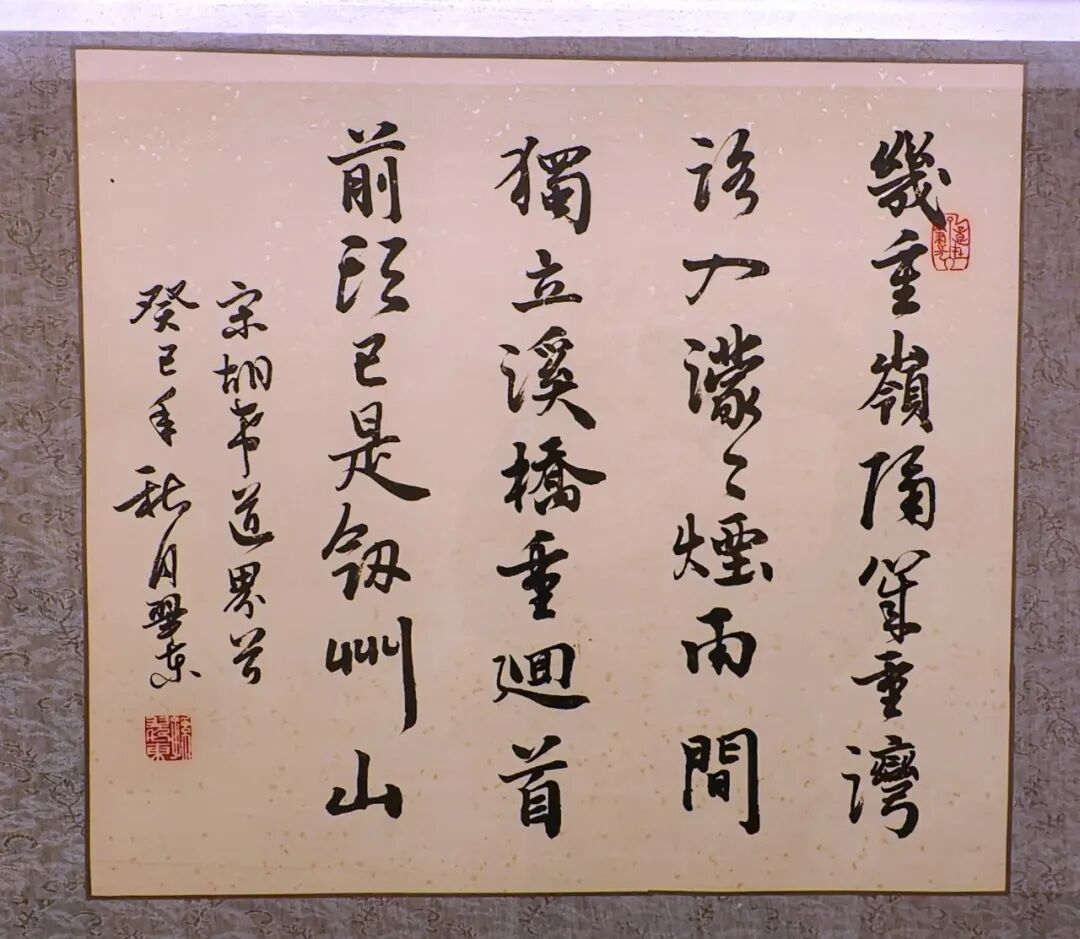 幾重嶺隔幾重灣
路入濛〻煙雨間
獨立溪橋重迴首
前頭已是釼州山
宋胡道界首
癸巳年秋月東